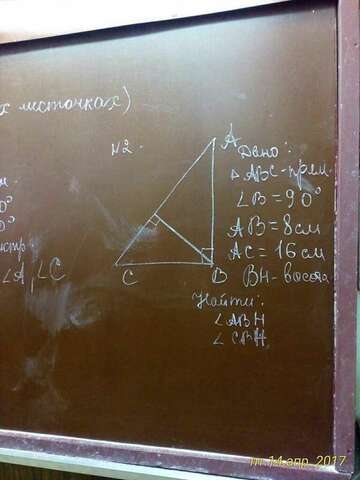 х листочках)
№2.
A
C
B
Дано:
△ABC - прям.
∠B = 90°
AB = 8см
AC = 16см
BH - высота
Найти:
∠ABH
∠CBH
0°
0°
∠A, ∠C
пт 14 апр. 2017